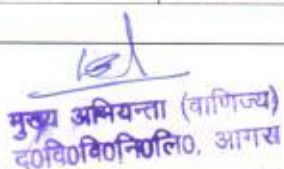 मुख्य अभियन्ता (वाणिज्य)
द0वि0वि0नि0लि0, आगरा